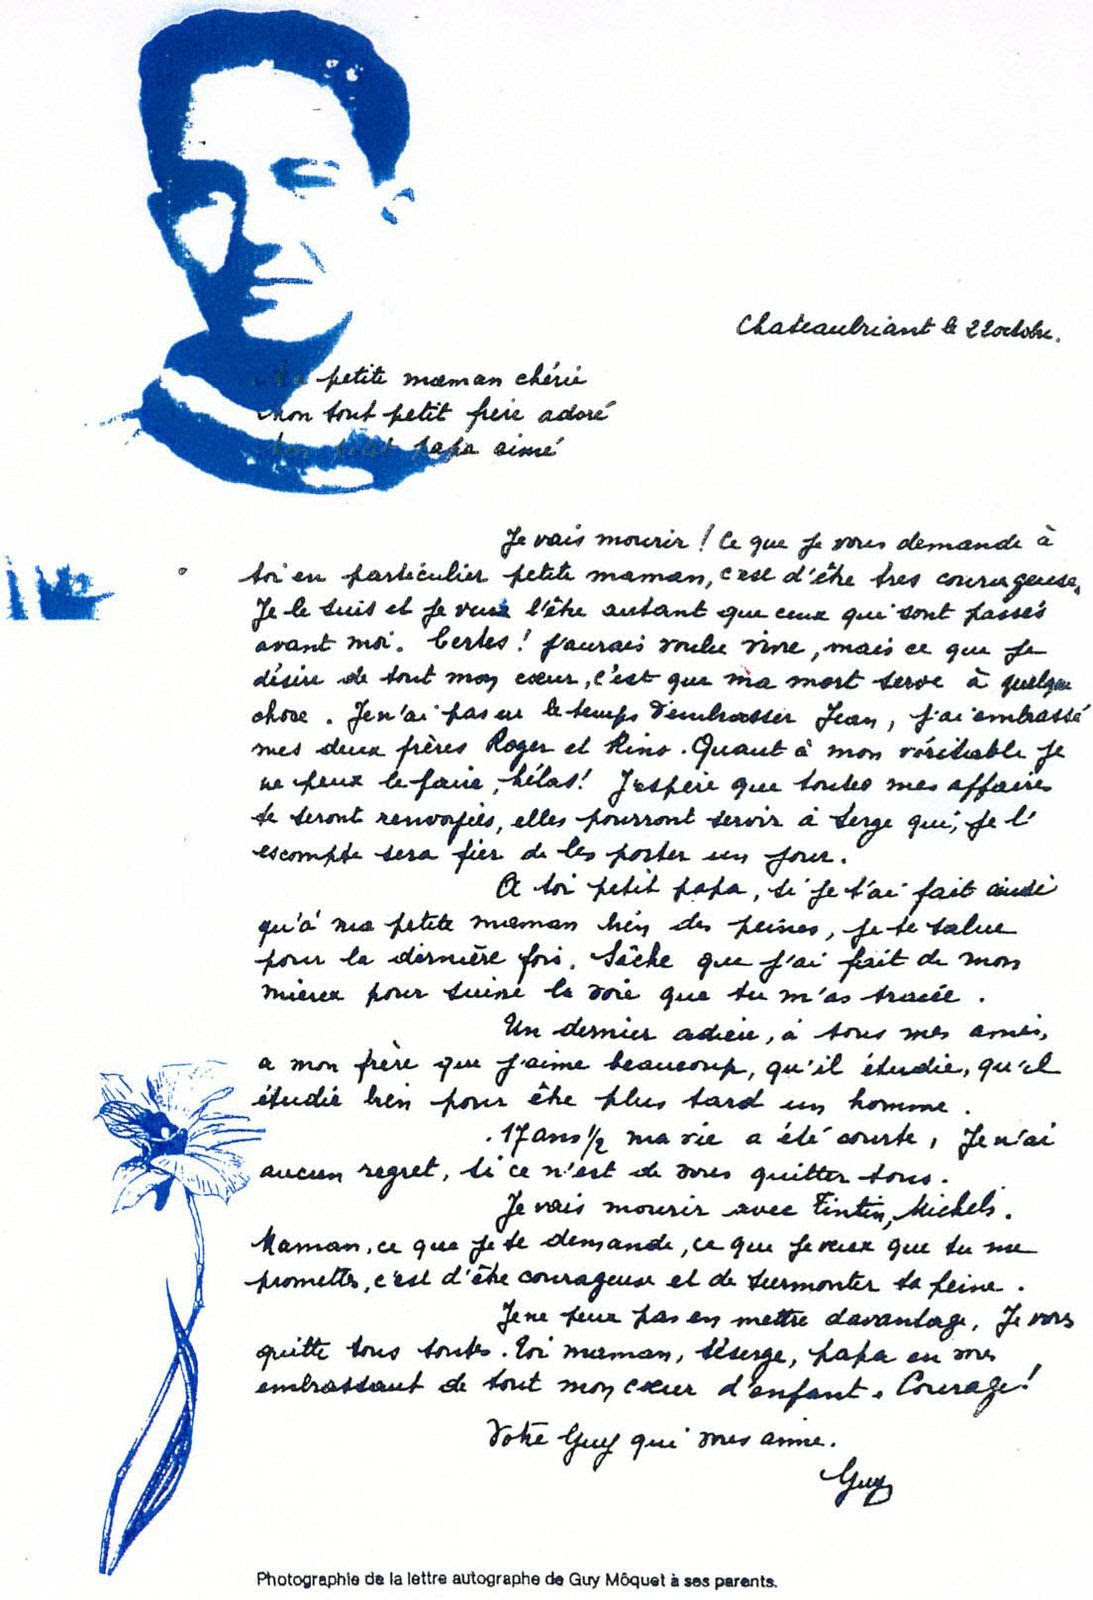 Chateaubriant le 22 octobre.
Ma petite maman chérie
mon tout petit frère adoré
mon petit papa aimé
Je vais mourir ! Ce que je vous demande à
toi en particulier petite maman, c'est d'être tres courageuse,
Je le suis et je veux l'être autant que ceux qui sont passés
avant moi. Certes ! j'aurais voulu vivre, mais ce que je
désire de tout mon cœur, c'est que ma mort serve à quelque
chose. Je n'ai pas eu le temps d'embrasser Jean, j'ai embrassé
mes deux frères Roger et Rino. Quant à mon véritable je
ne peux le faire, hélas ! J'espère que toutes mes affaires
te seront renvoyées, elles pourront servir à serge qui, je l'
escompte sera fier de les porter un jour.
A toi petit papa, si je t'ai fait ainsi
qu'à ma petite maman bien des peines, je te salue
pour la dernière fois. Sâche que j'ai fait de mon
mieux pour suivre la voie que tu m'as tracée.
Un dernier adieu, à tous mes amis,
a mon frère que j'aime beaucoup, qu'il étudie, qu'il
étudie bien pour être plus tard un homme.
17 ans 1/2 ma vie a été courte, Je n'ai
aucun regret, si ce n'est de vous quitter tous.
Je vais mourir avec Tintin, Michels.
Maman, ce que je te demande, ce que je veux que tu me
promettes, c'est d'être courageuse et de surmonter ta peine.
Je ne peux pas en mettre davantage, Je vous
quitte tous toutes. Toi maman, séserge, papa en vous
embrassant de tout mon cœur d'enfant. Courage !
Votre Guy qui vous aime.
Guy
Photographie de la lettre autographe de Guy Môquet à ses parents.